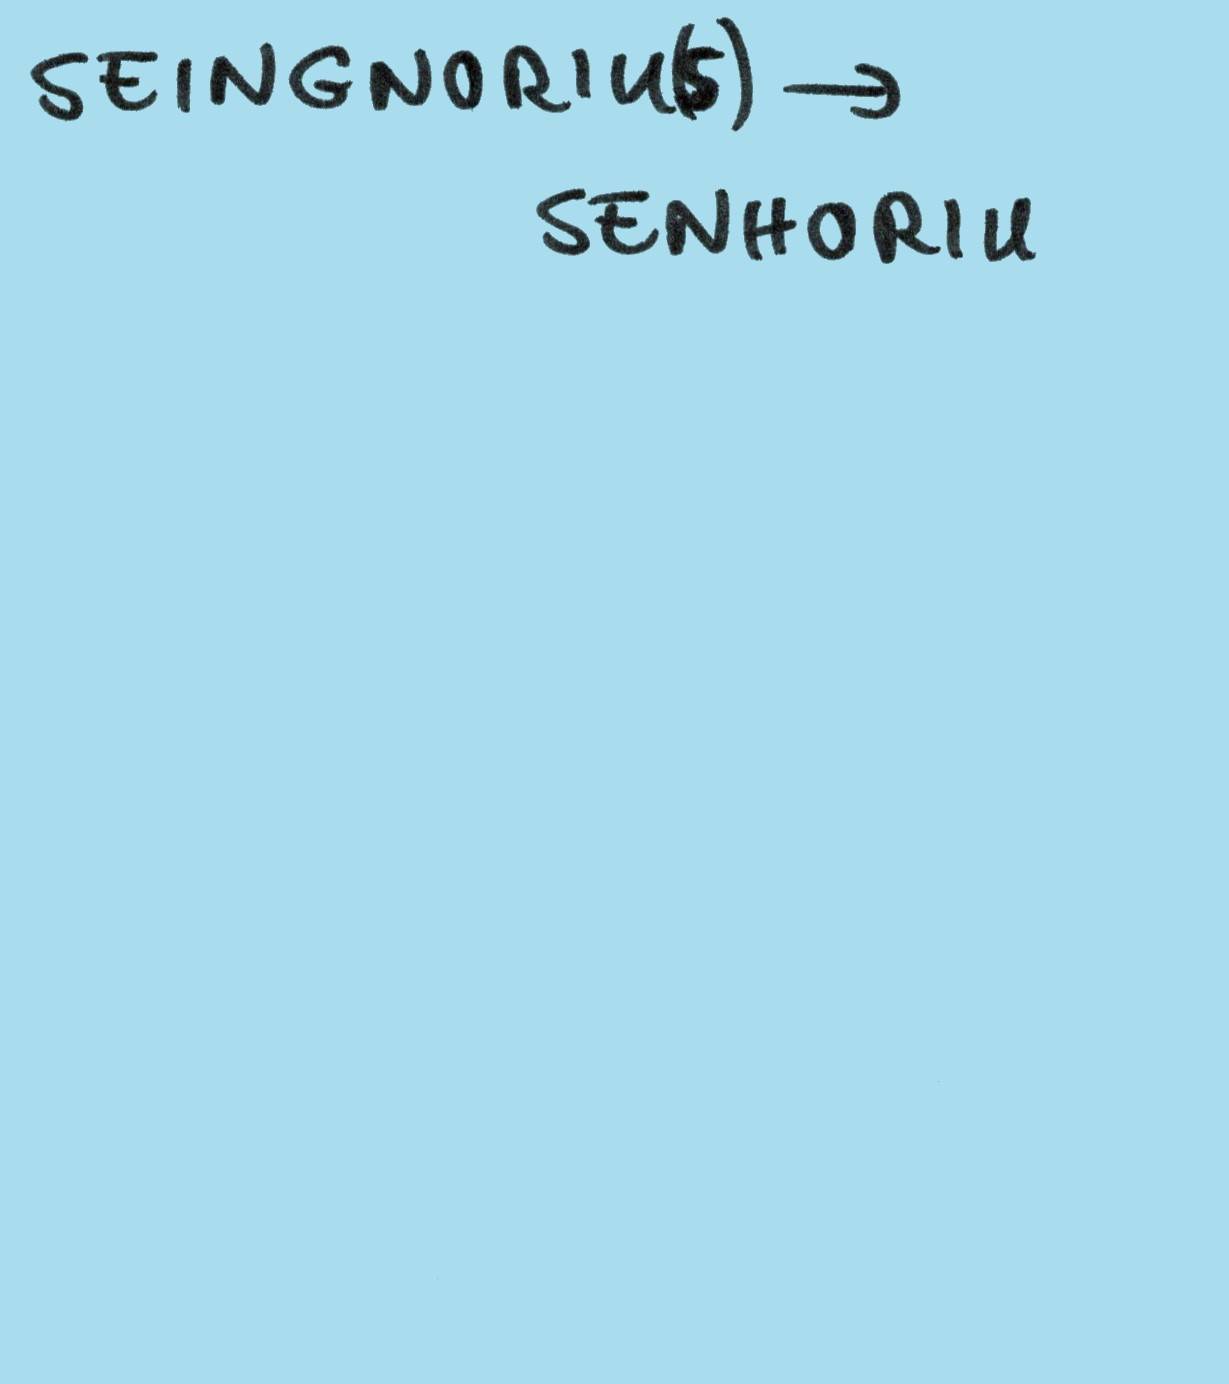 SEINGNORIU(S) →
SENHORIU